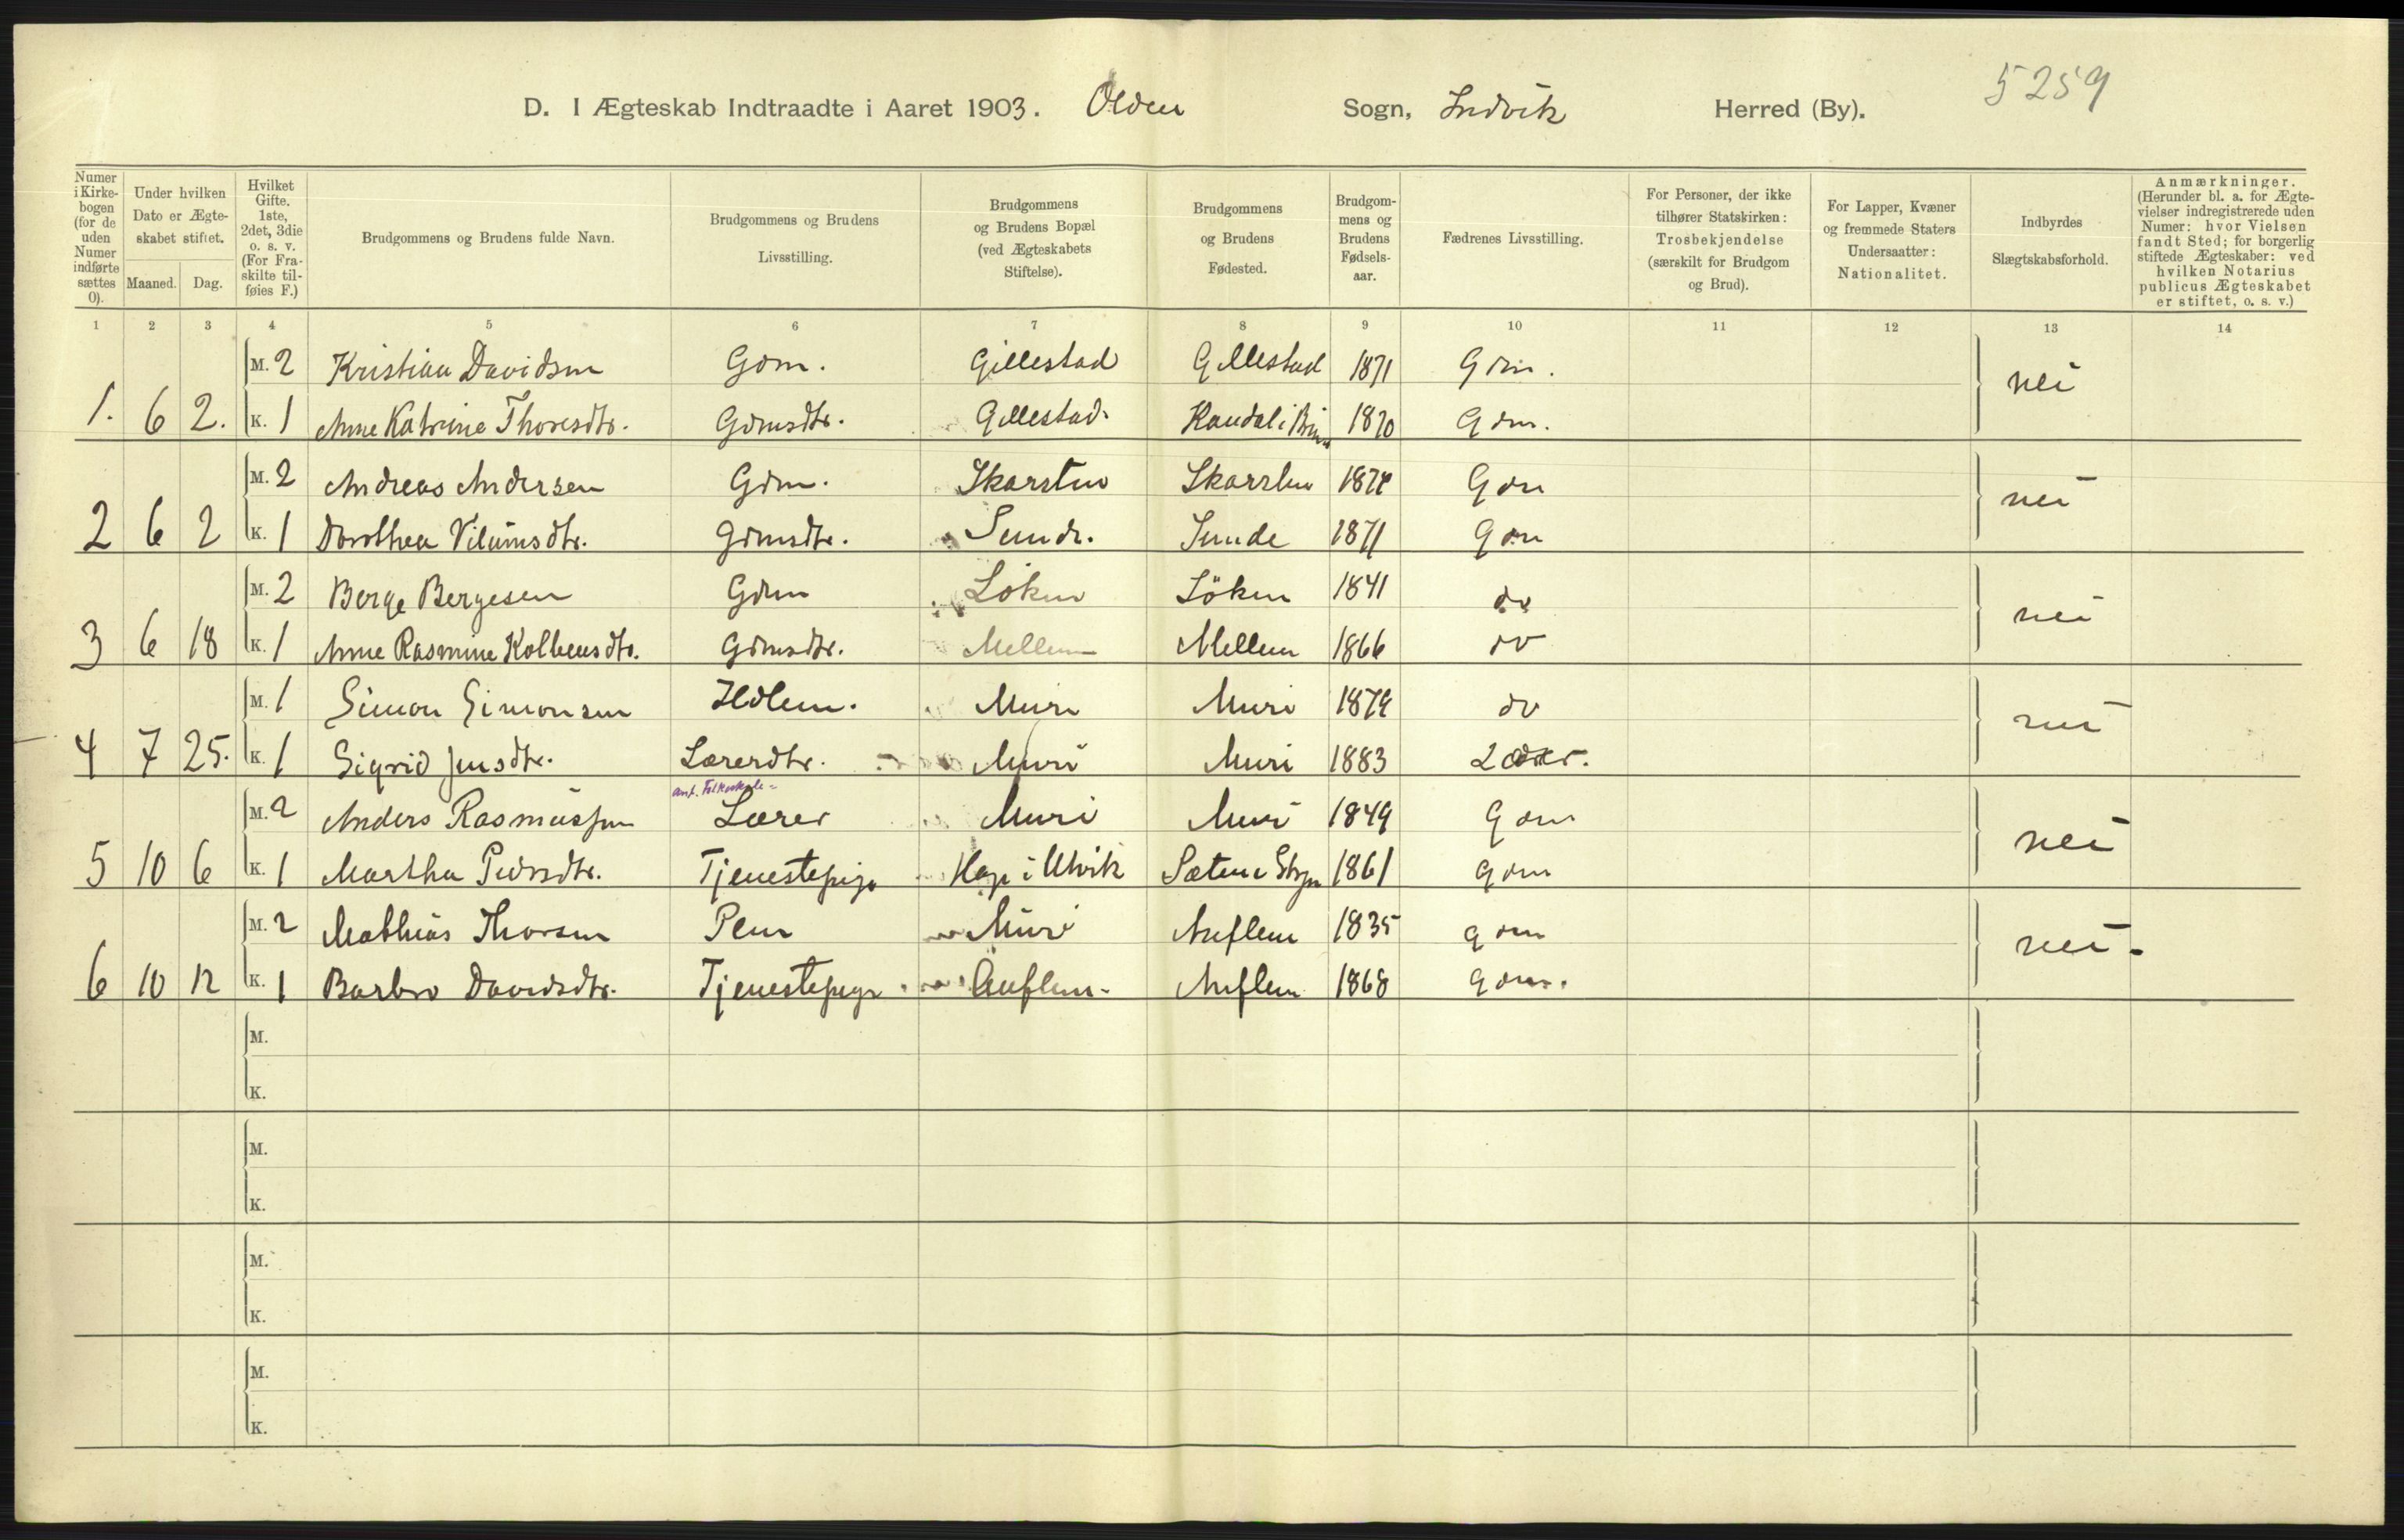 5259
D. I Ægteskab Indtraadte i Aaret 1903. Olden Sogn, Indvik Herred (By).
Numer i Kirke-bogen (for de uden Numer indførte sættes 0).
Under hvilken Dato er Ægte-skabet stiftet.
Maaned. Dag.
Hvilket Gifte. 1ste, 2det, 3die o. s. v. (For Fra-skilte til-føies F.)
Brudgommens og Brudens fulde Navn.
Brudgommens og Brudens Livsstilling.
Brudgommens og Brudens Bopæl (ved Ægteskabets Stiftelse).
Brudgommens og Brudens Fødested.
Brudgom-mens og Brudens Fødsels-aar.
Fædrenes Livsstilling.
For Personer, der ikke tilhører Statskirken: Trosbekjendelse (særskilt for Brudgom og Brud).
For Lapper, Kvæner og fremmede Staters Undersaatter: Nationalitet.
Indbyrdes Slægtskabsforhold.
Anmærkninger. (Herunder bl. a. for Ægte-vielser indregistrerede uden Numer: hvor Vielsen fandt Sted; for borgerlig stiftede Ægteskaber: ved hvilken Notarius publicus Ægteskabet er stiftet, o. s. v.)
1 2 3 4 5 6 7 8 9 10 11 12 13 14
M. 2 Kristian Davidsen Gdm. Gillestad Gillestad 1871 Gdm. nei
1. 6 2. K. 1 Anne Katrine Thoresdtr. Gdmsdtr. Gillestad Kandal i 1870 Gdm.
M. 2 Andreas Andersen Gdm. Skarsten Skarsten Gdm nei
2 6 2 K. 1 Dorthea Gdmsdtr. Sunde. Sunde 1871 Gdm
M. 2 Berge Bergesen Gdm Löken Löken 1841 do nei
3 6 18 K. 1 Anne Rasmine Kolbensdtr. Gdmsdtr. Mellem Mellem 1866 do
M. 1 Simon Simonsen Muri Muri 1879 do nei
4 7 25. K. 1 Sigrid Jensdtr. Lærerdtr. Muri Muri 1883 Lærer.
ant. Folkeskole-
M. 2 Anders Rasmussen Lærer Muri Muri 1849 Gdm nei
5 10 6 K. 1 Martha Pedersdtr. Tjenestepige i Utvik Sæten i Stryn 1861 Gdm
M. 2 Mathias Thorsen Muri Auflem 1835 gdm nei-
6 10 12 K. 1 Barbro Davidsdtr. Tjenestepige Auflem- Auflem 1868 gdm.
M.
K.
M.
K.
M.
K.
M.
K.